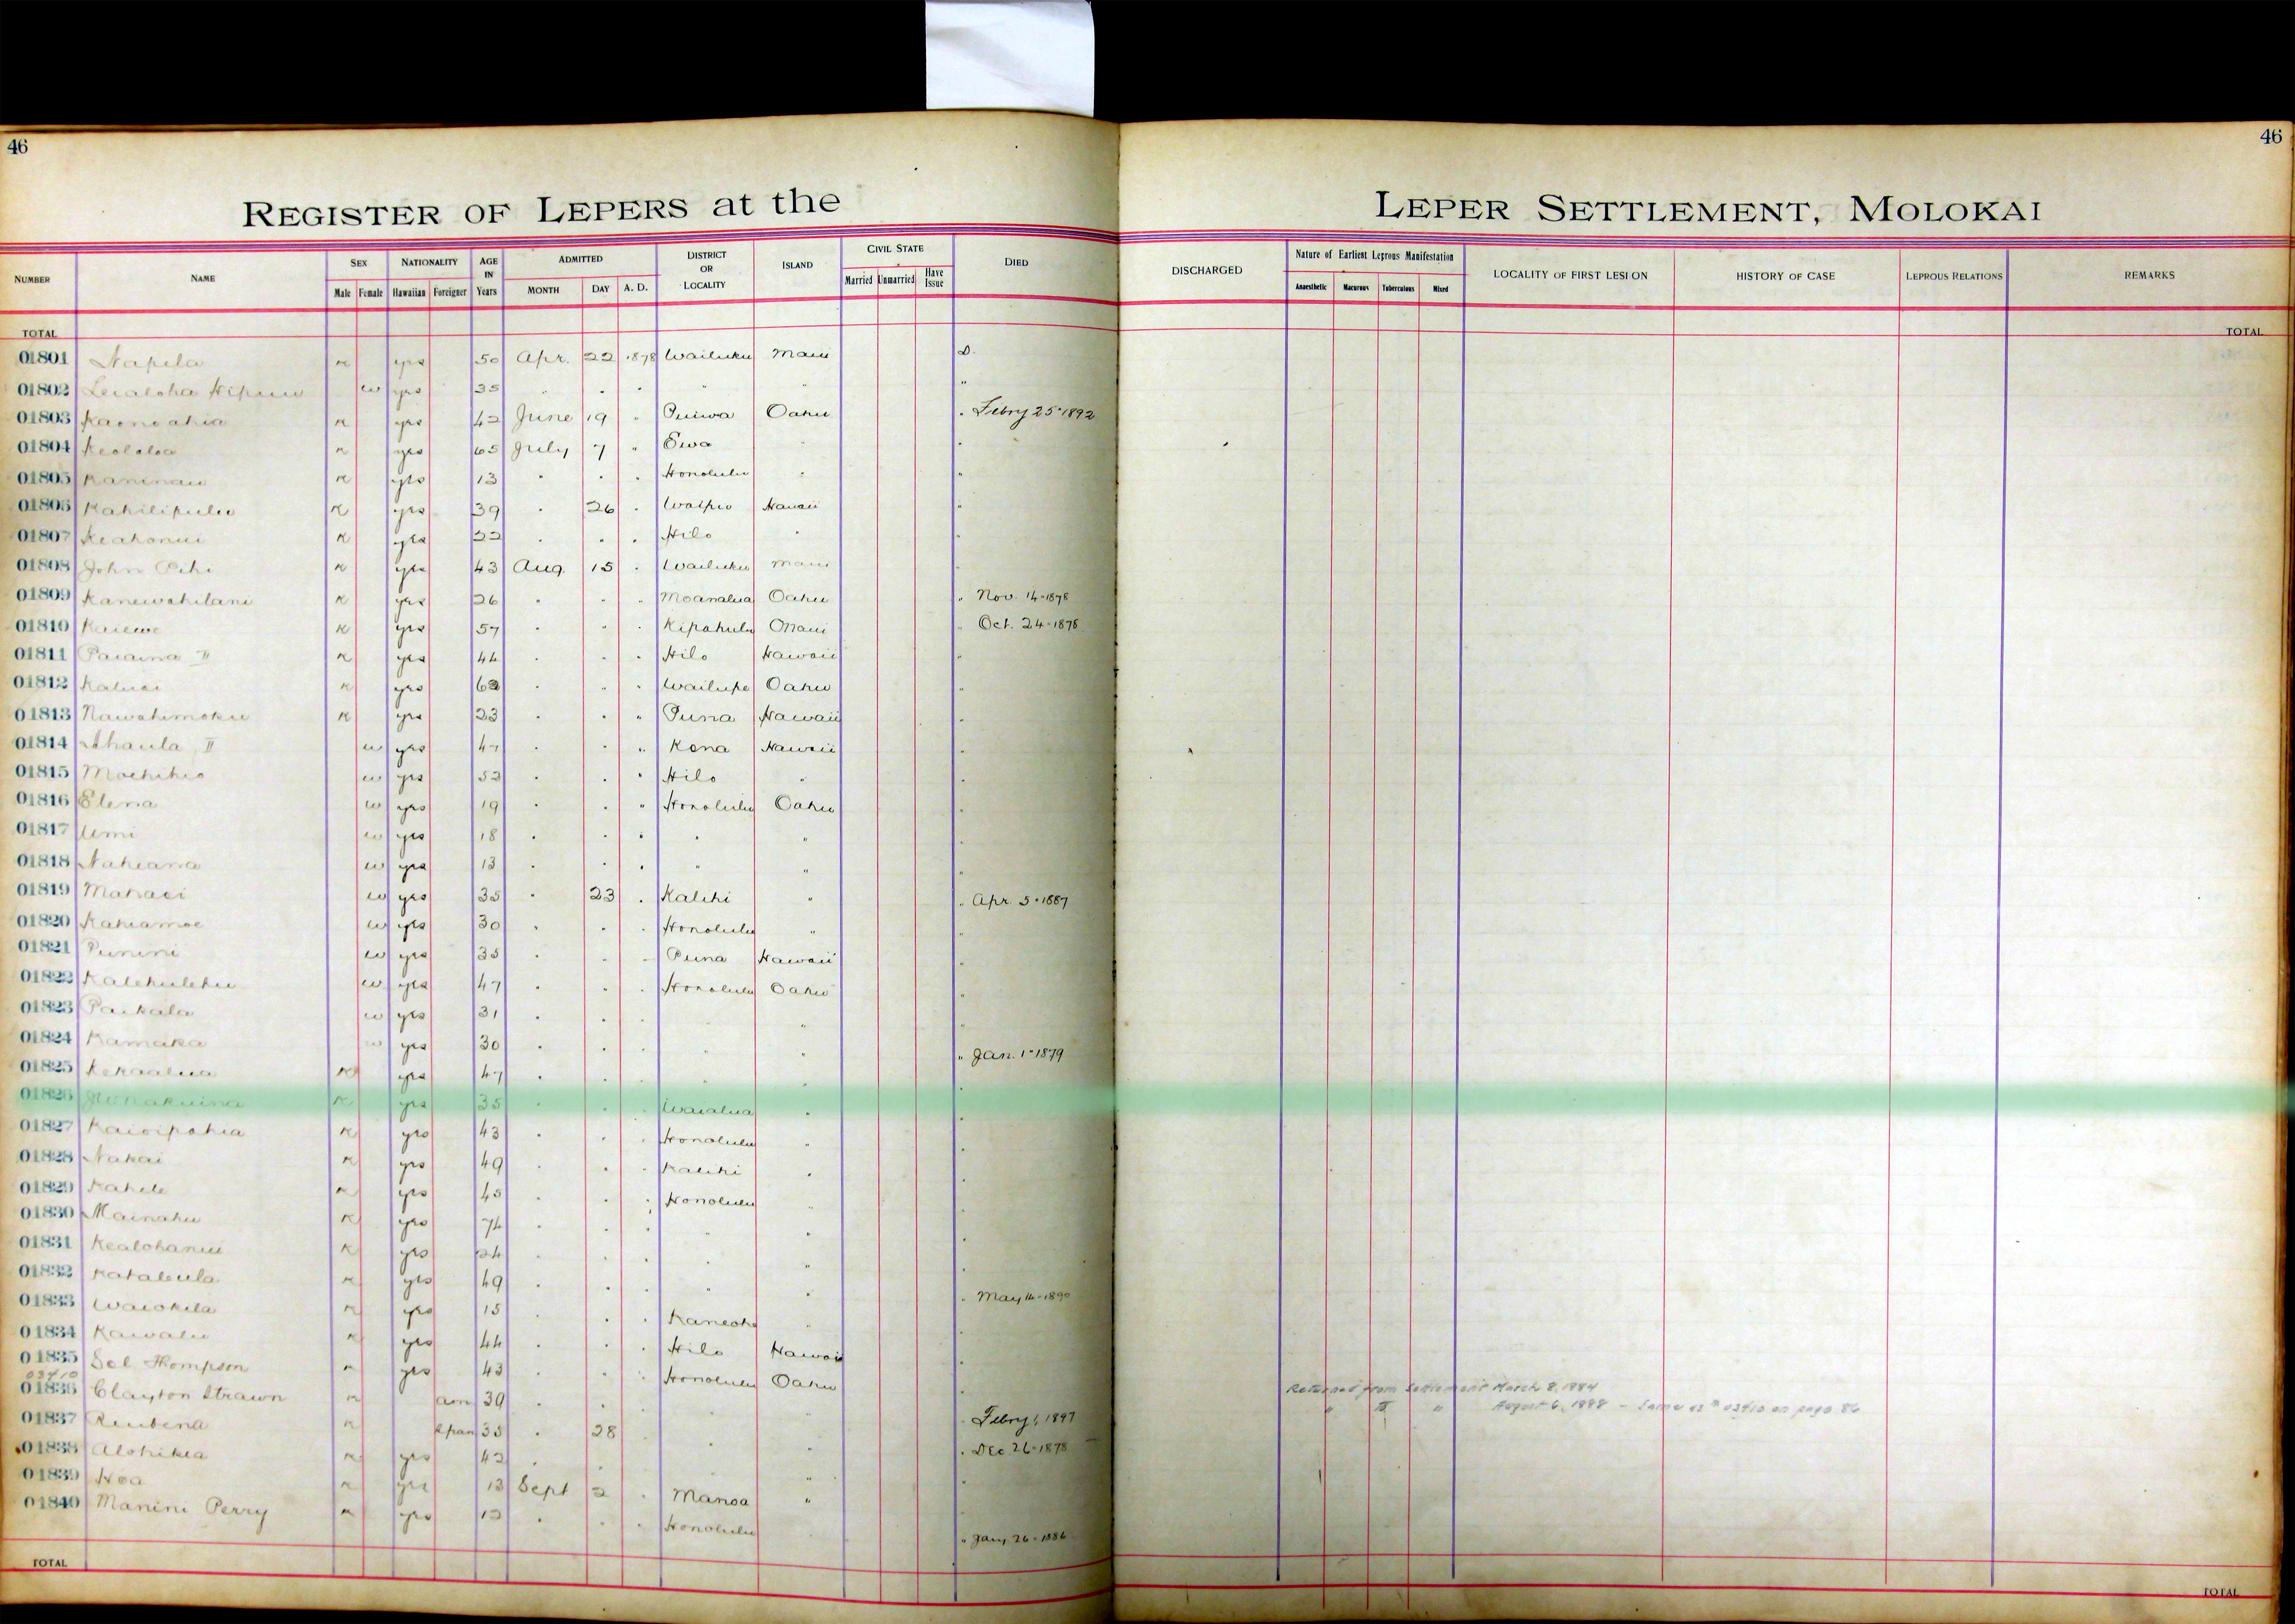 46
46
REGISTER OF LEPERS at the LEPER SETTLEMENT, MOLOKAI
NUMBER NAME SEX Male Female NATIONALITY Hawaiian Foreigner AGE IN Years ADMITTED MONTH DAY A. D. DISTRICT OR LOCALITY ISLAND CIVIL STATE Married Unmarried Have Issue DIED DISCHARGED Nature of Earliest Leprous Manifestation Anaesthetic Macurous Tuberculous Mixed LOCALITY OF FIRST LESION HISTORY OF CASE LEPROUS RELATIONS REMARKS
TOTAL TOTAL
01801 Napela m yes 50 Apr. 22 1878 Wailuku Maui D.
01802 Lealoha w yes 35 . . . " "
01803 Kaonoahia m yes 42 June 19 " Puiwa Oahu " Febry 25 1892
01804 Keololoa m yes 65 July 7 " Ewa " "
01805 Kaninau m yes 13 " . . Honolulu " "
01806 Kahilipulu m yes 39 " 26 . Waipio Hawaii "
01807 Keahonui m yes 22 . . . Hilo " "
01808 John Pihi m yes 43 Aug. 15 . Wailuku Maui "
01809 Kanewahilani m yes 26 " " . Moanalua Oahu " Nov. 14-1878
01810 Kaiewe m yes 57 " " . Kipahulu Maui " Oct. 24-1878
01811 Paiaina II m yes 44 . . . Hilo Hawaii "
01812 Kaluai m yes 62 . . . Wailupe Oahu "
01813 Nawahimoku m yes 23 . . " Puna Hawaii "
01814 Ahaula II w yes 47 . . " Kona Hawaii "
01815 Moehihio w yes 52 . . " Hilo " "
01816 Elena w yes 19 . . " Honolulu Oahu "
01817 Umi w yes 18 . . . . " "
01818 Nahiana w yes 13 . . . " " "
01819 Mahaei w yes 35 " 23 . Kalihi " " Apr. 5-1887
01820 Kahiamoe w yes 30 . . . Honolulu " "
01821 Punini w yes 35 . . . Puna Hawaii "
01822 Kalehulehu w yes 47 . . . Honolulu Oahu "
01823 Paikala w yes 31 . . . " "
01824 Kamaka w yes 30 . . . . " " Jan. 1-1879
01825 Kekaalua m yes 47 . . . "
01826 m yes 35 . . . Waialua . "
01827 Kaioipahia m yes 43 . . . Honolulu " "
01828 Nakai m yes 49 . . . Kalihi . "
01829 Kahele m yes 45 . . . Honolulu " "
01830 Mainahu m yes 74 . . . . "
01831 Kealohanui m yes 24 . . . " "
01832 Katalaula m yes 49 . . . " . " May 14-1890
01833 Waiohila m yes 15 . . Kaneohe " "
01834 Kawalu m yes 44 . . . Hilo Hawaii "
01835 Sol Thompson m yes 43 . . . Honolulu Oahu " Returned from Settlement March 8, 1884
03410
01836 Clayton Strawn m am 39 . . " Febry 1, 1897 " " " August 6, 1888 - Same as # 03410 on page 86
01837 Reubena m Span 35 . 28 . " " Dec 26-1878
01838 Alohikea m yes 42 . . " "
01839 Hoa m yes 13 Sept 2 . Manoa " "
01840 Manini Perry m yes 12 . . . Honolulu " Jany 26-1886
TOTAL TOTAL